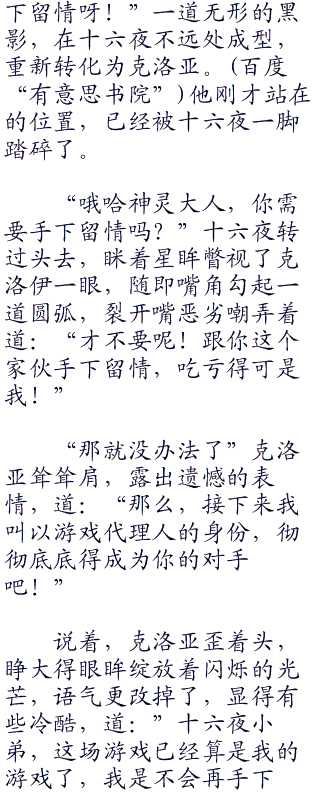 下留情呀！”一道无形的黑
影，在十六夜不远处成型，
重新转化为克洛亚。(百度
“有意思书院”)他刚才站在
的位置，已经被十六夜一脚
踏碎了。
“哦哈神灵大人，你需
要手下留情吗？”十六夜转
过头去，眯着星眸瞥视了克
洛伊一眼，随即嘴角勾起一
道圆弧，裂开嘴恶劣嘲弄着
道：“才不要呢！跟你这个
家伙手下留情，吃亏得可是
我！”
“那就没办法了”克洛
亚耸耸肩，露出遗憾的表
情，道：“那么，接下来我
叫以游戏代理人的身份，彻
彻底底得成为你的对手
吧！”
说着，克洛亚歪着头，
睁大得眼眸绽放着闪烁的光
芒，语气更改掉了，显得有
些冷酷，道：”十六夜小
弟，这场游戏已经算是我的
游戏了，我是不会再手下